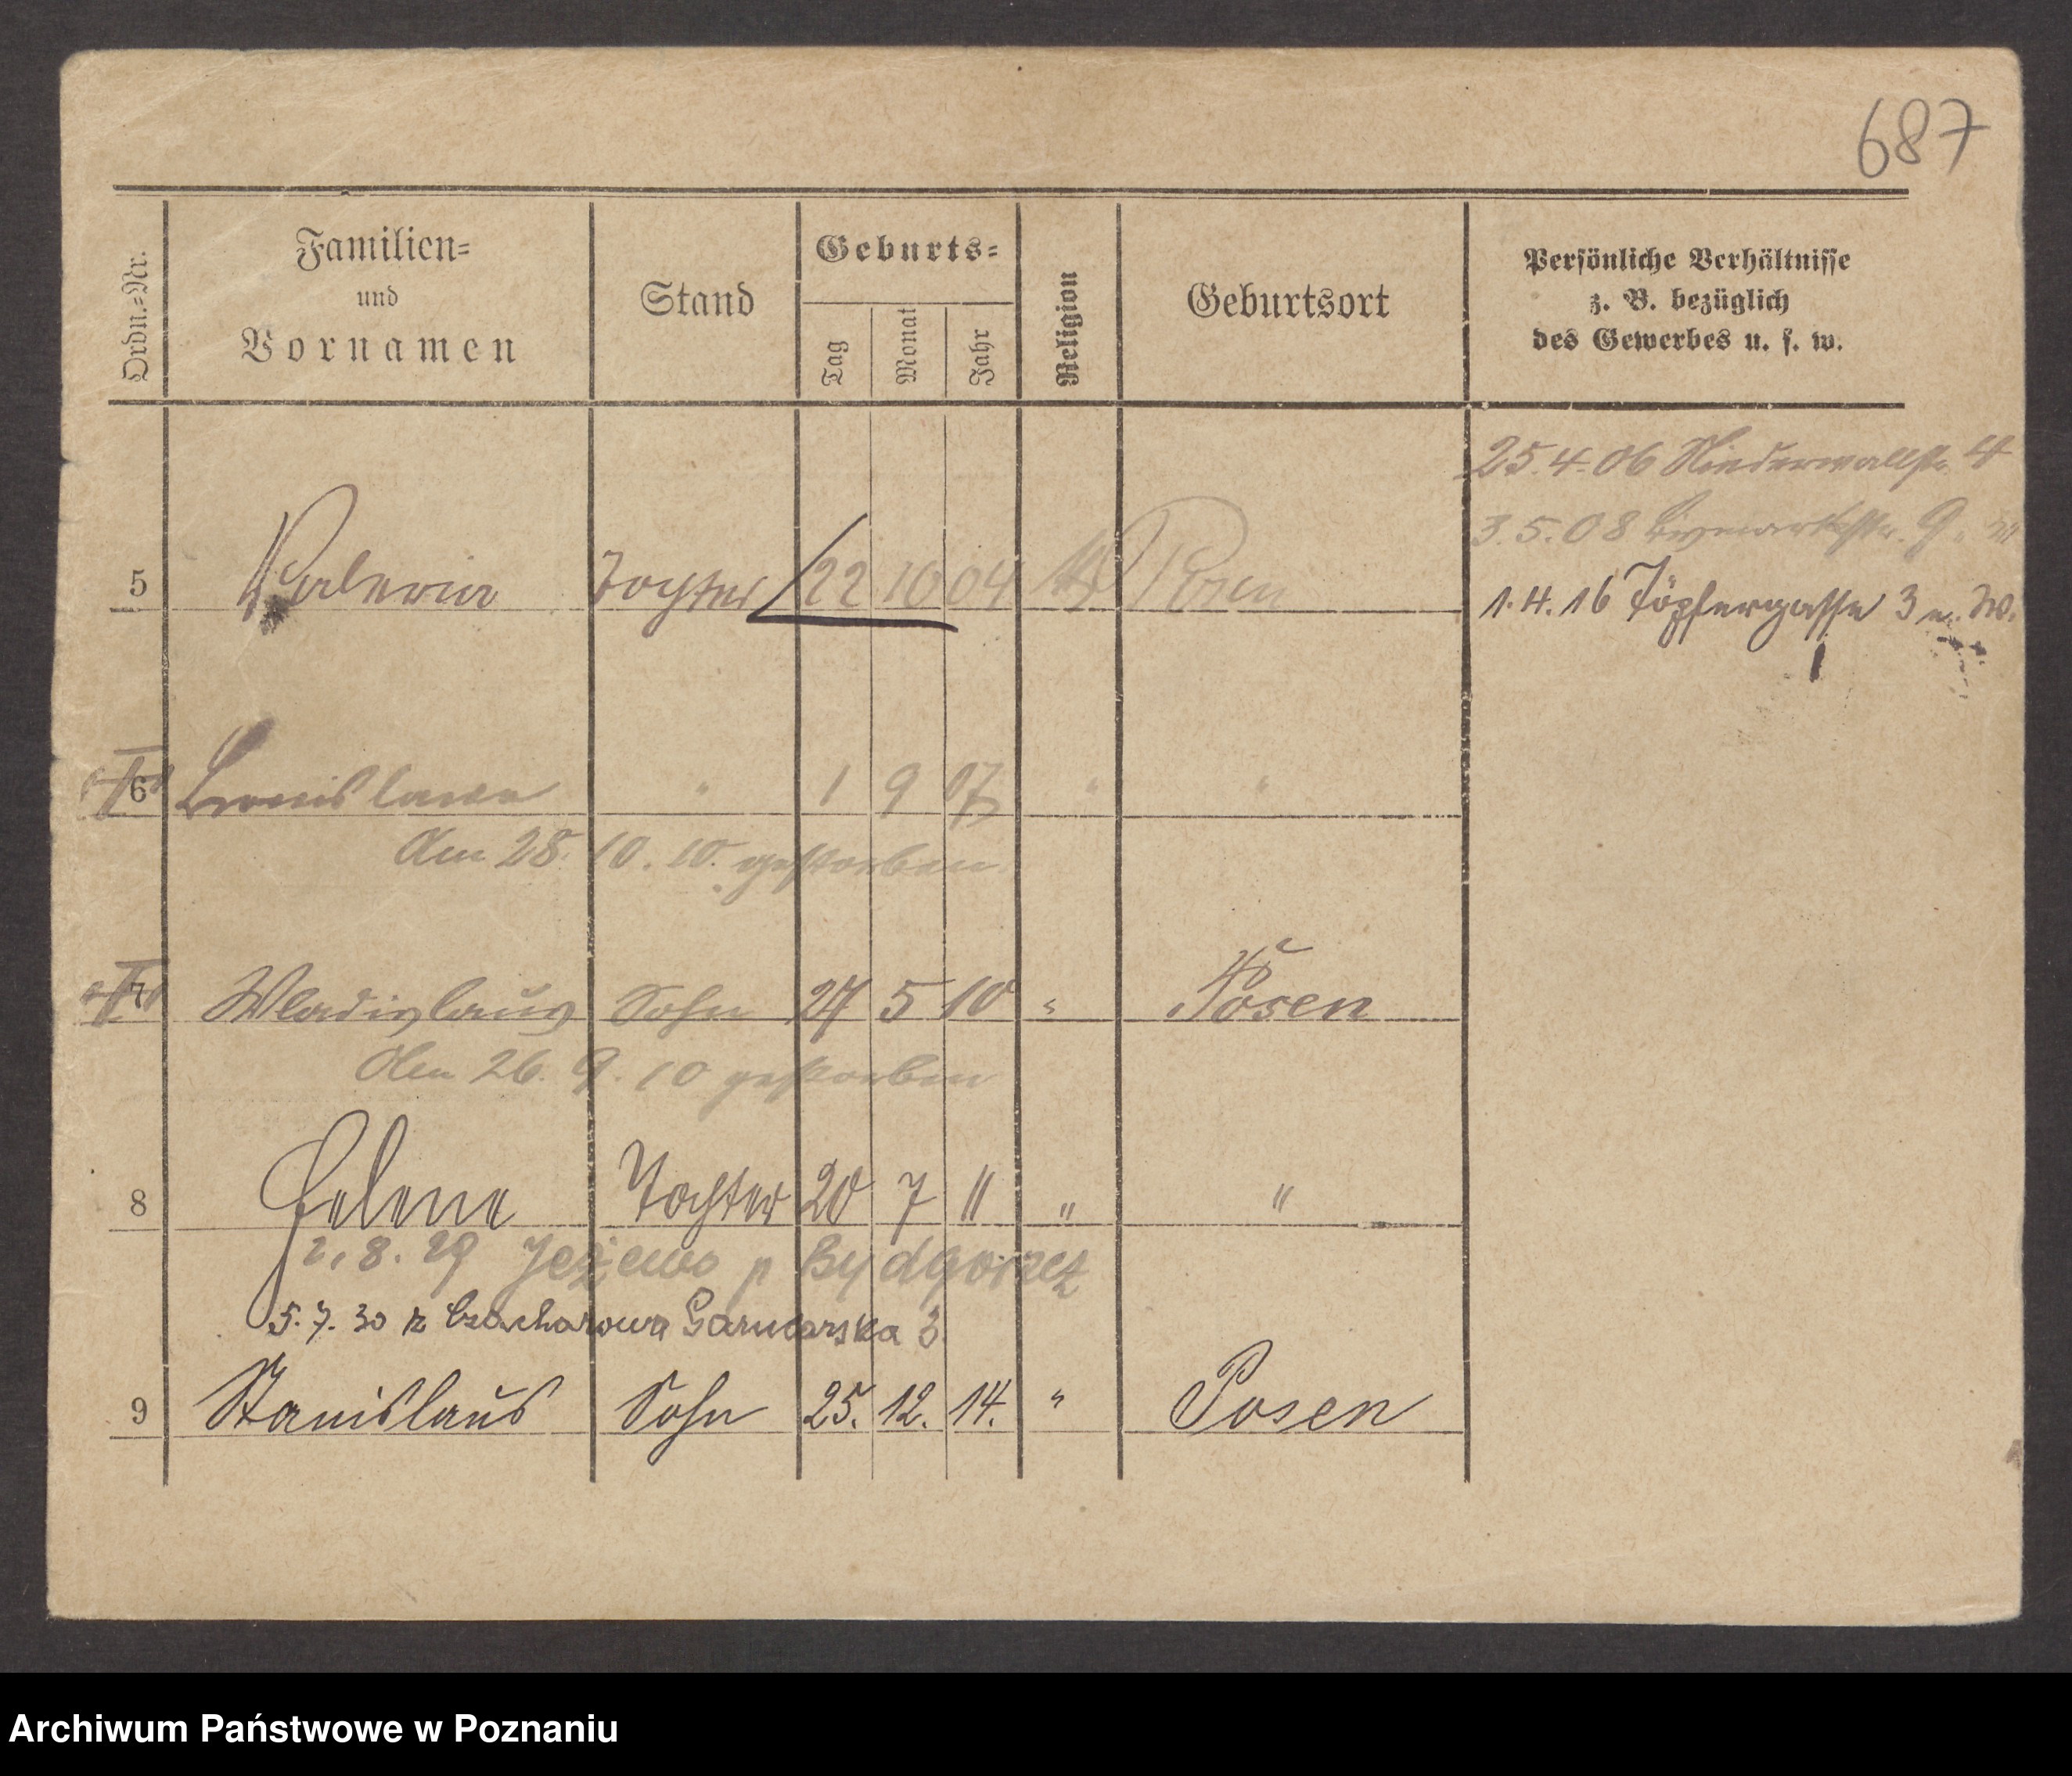 687
Ordn.=Nr.
Familien=
und
Vornamen
Stand
Geburts=
Tag
Monat
Jahr
Religion
Geburtsort
Persönliche Verhältnisse
z. B. bezüglich
des Gewerbes u. s. w.
25.4.06 Niederwallstr. 4
3.5.08 Bismarckstr. 9.
1.4.16 Töpfergasse 3 n. W.
5 Valeria Tochter 22 10 04 Posen
6 Bronislawa " 1 9 07 " "
Am 28. 10. 10. gestorben
7 Wladislaus Sohn 27 5 10 " Posen
Am 26. 9. 10 gestorben
8 Helene Tochter 20 7 11 " "
2.8.29 Jeżewo p Bydgoszcz
5.7.30 z Garncarska 3
9 Stanislaus Sohn 25. 12. 14. " Posen
Archiwum Państwowe w Poznaniu